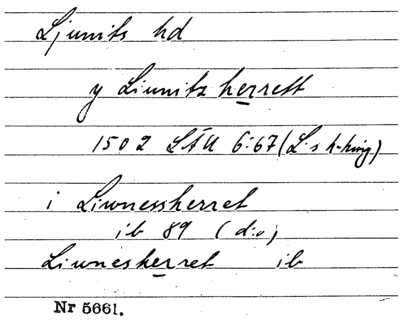 Ljunits hd
y Liunitz herrett
1502 LÄU 6:67 (L:s h-ting)
i Liwnessherret
ib 89 (d:o)
Liwnesherret ib
Nr 5661.